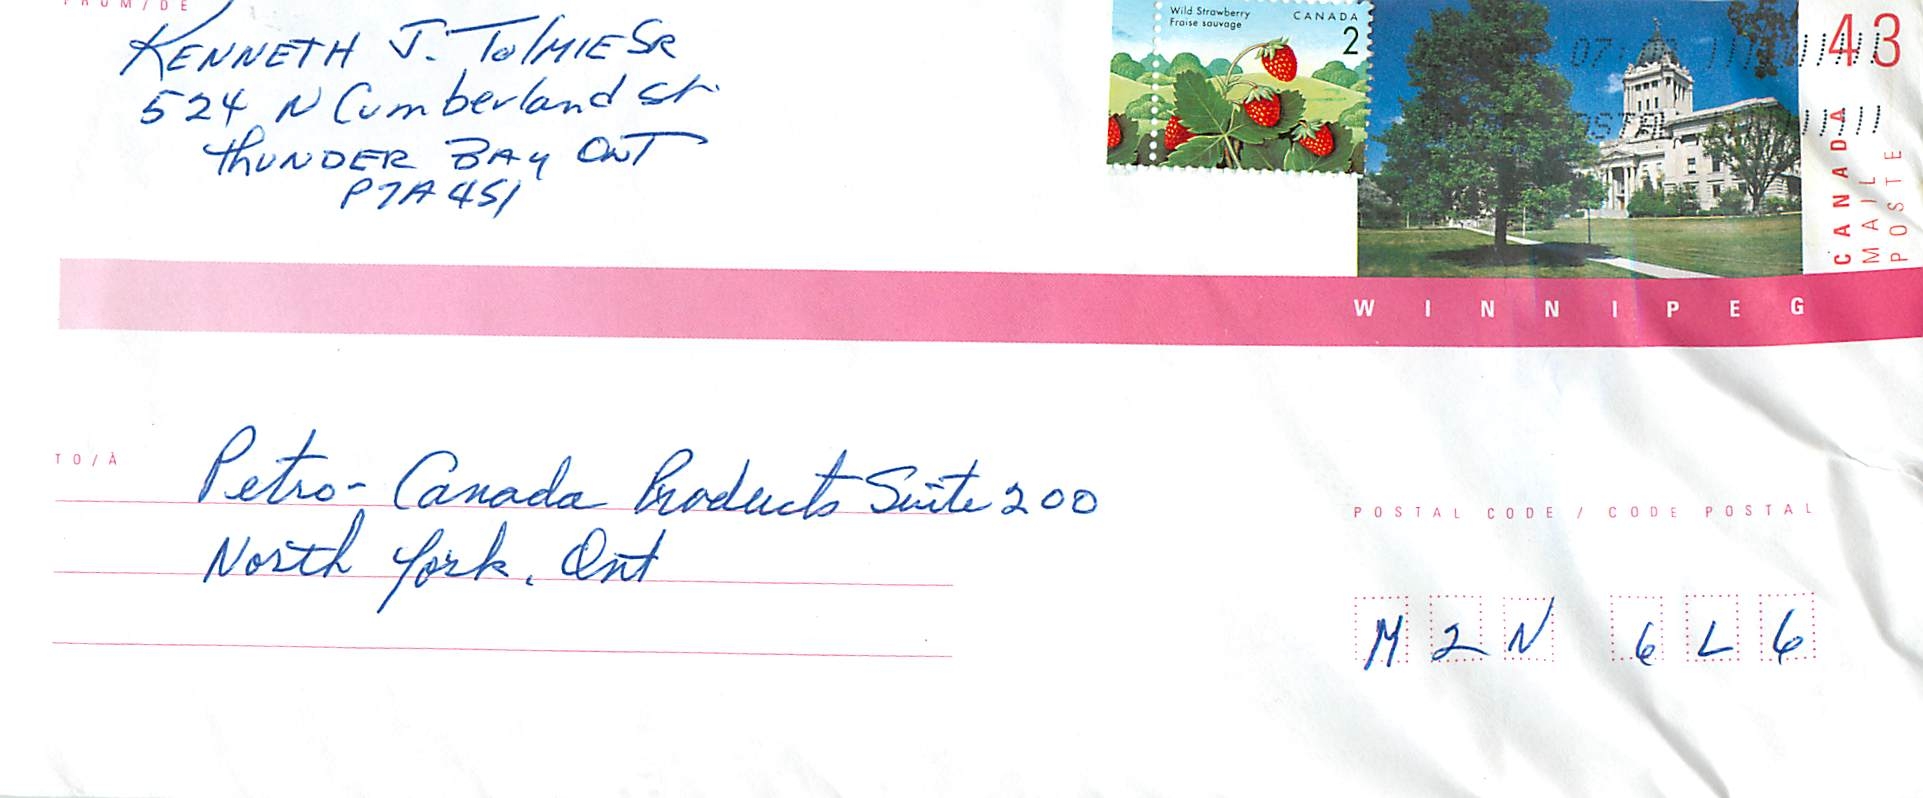 FROM/DE
KENNETH J. TOLMIE SR
524 N Cumberland St.
THUNDER BAY ONT
P7A 4S1
Wild Strawberry
Fraise sauvage
CANADA
2
43
07:
POSTAL
CANADA
MAIL
POSTE
WINNIPEG
TO/À
Petro-Canada Products Suite 200
North York, Ont
POSTAL CODE / CODE POSTAL
M2N 6L6